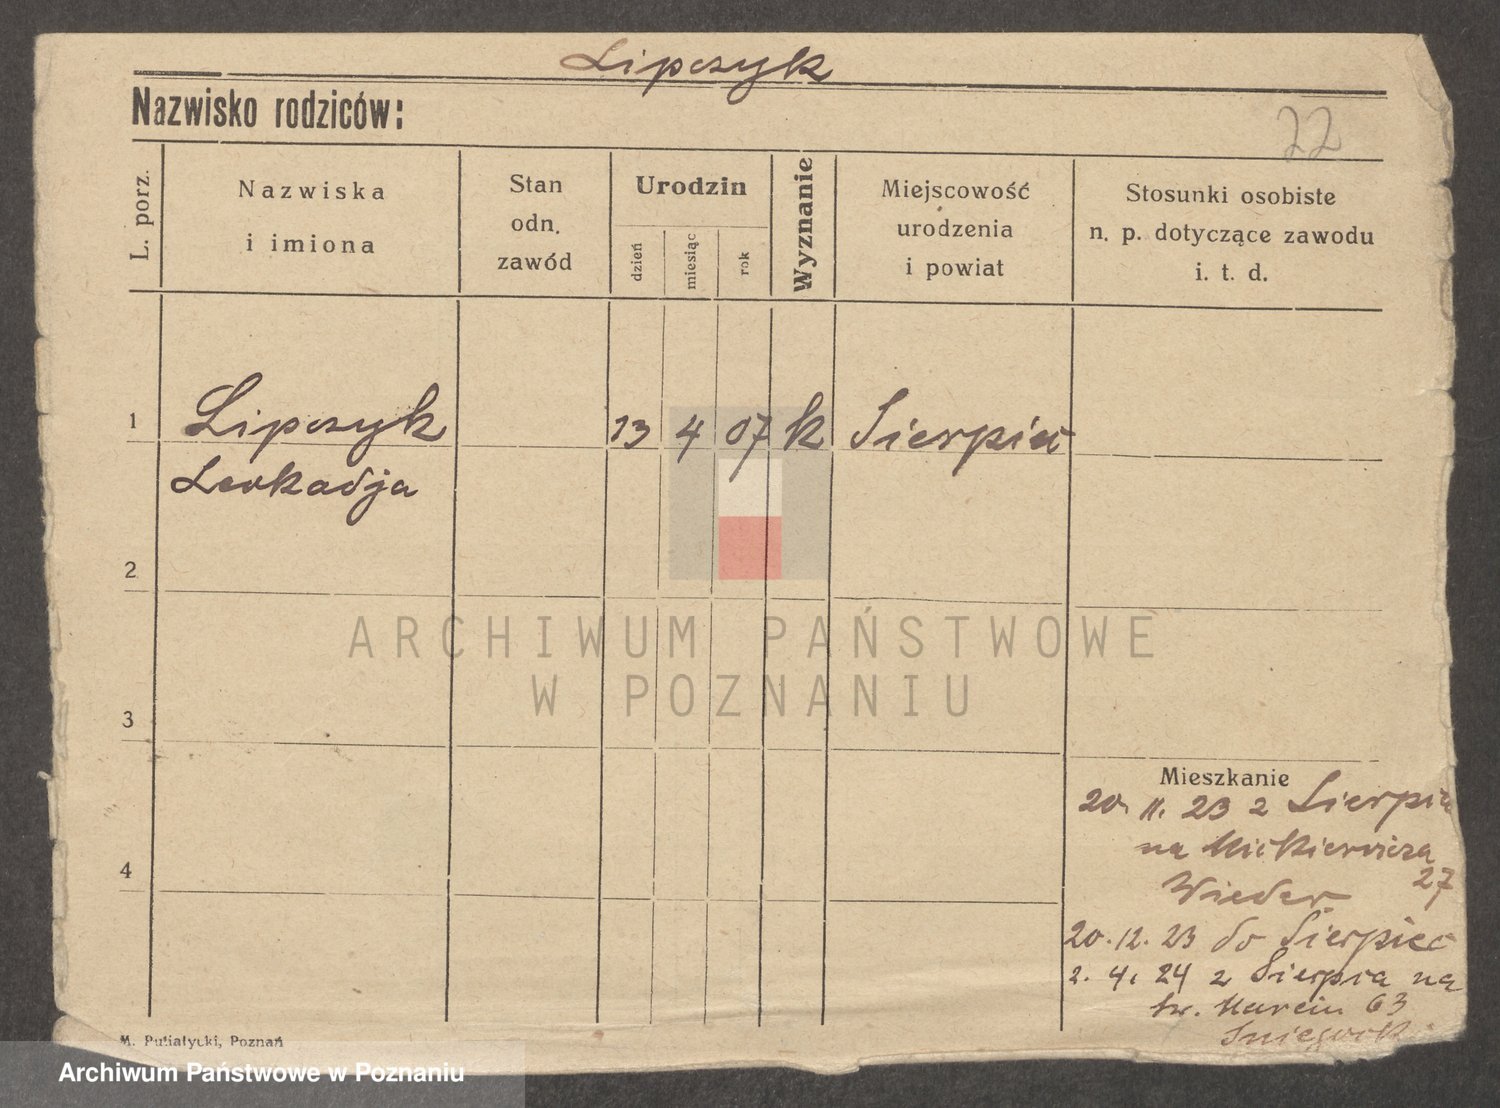 Lipczyk
Nazwisko rodziców:
22
L. porz.
Nazwiska
i imiona
Stan
odn.
zawód
Urodzin
dzień
miesiąc
rok
Wyznanie
Miejscowość
urodzenia
i powiat
Stosunki osobiste
n. p. dotyczące zawodu
i. t. d.
1
Lipczyk
Leokadja
13 4 07 k Sierpiec
2
ARCHIWUM PAŃSTWOWE
W POZNANIU
3
4
Mieszkanie
20. 11. 23 z Sierpca
na Mickiewicza
27
Wieder
20. 12. 23 do Sierpiec
2. 4. 24 z Sierpca na
św. Marcin 63
M. Putiatycki, Poznań
Archiwum Państwowe w Poznaniu